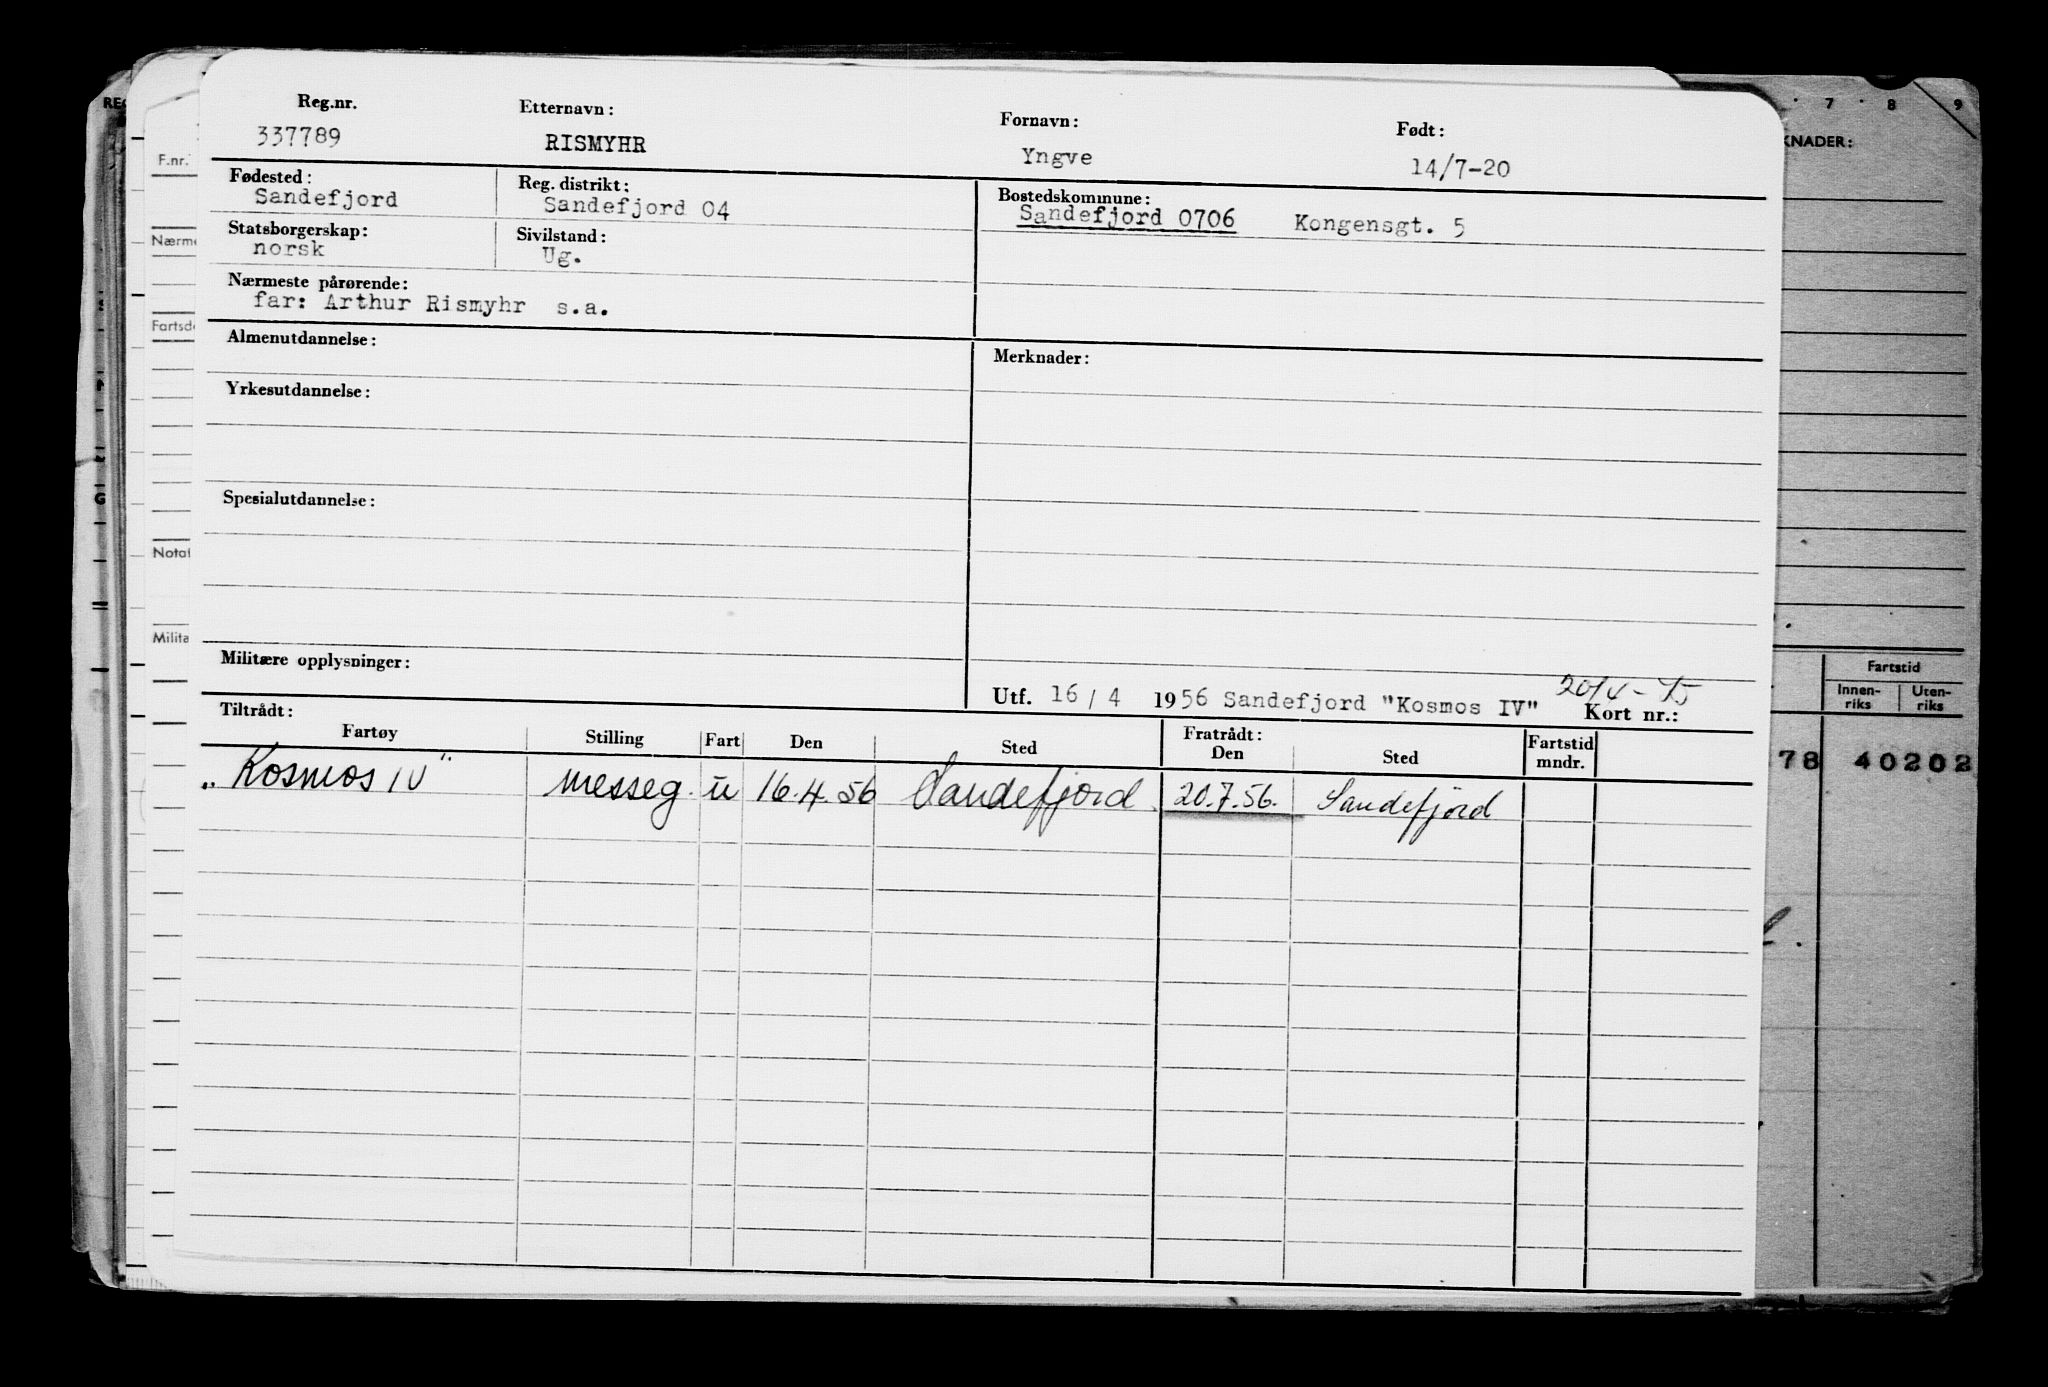 Reg.nr. Etternavn: Fornavn: Født:
337789 RISMYHR Yngve 14/7-20
Fødested: Reg. distrikt: Bostedskommune:
Sandefjord Sandefjord 04 Sandefjord 0706 Kongensgt. 5
Statsborgerskap: Sivilstand:
norsk Ug.
Nærmeste pårørende:
far: Arthur Rismyhr s.a.
Almenutdannelse: Merknader:
Yrkesutdannelse:
Spesialutdannelse:
Militære opplysninger:
Utf. 16/4 1956 Sandefjord "Kosmos IV" Kort nr.:
Tiltrådt: Fratrådt:
Fartøy Stilling Fart Den Sted Den Sted Fartstid mndr.
"Kosmos IV" messeg. u 16.4.56 Sandefjord 20.7.56. Sandefjord
F.nr.
Nærme
Fartsde
Notat
Milita
7 8 9
KNADER:
Fartstid
Innen-
riks
Uten-
riks
78 40202